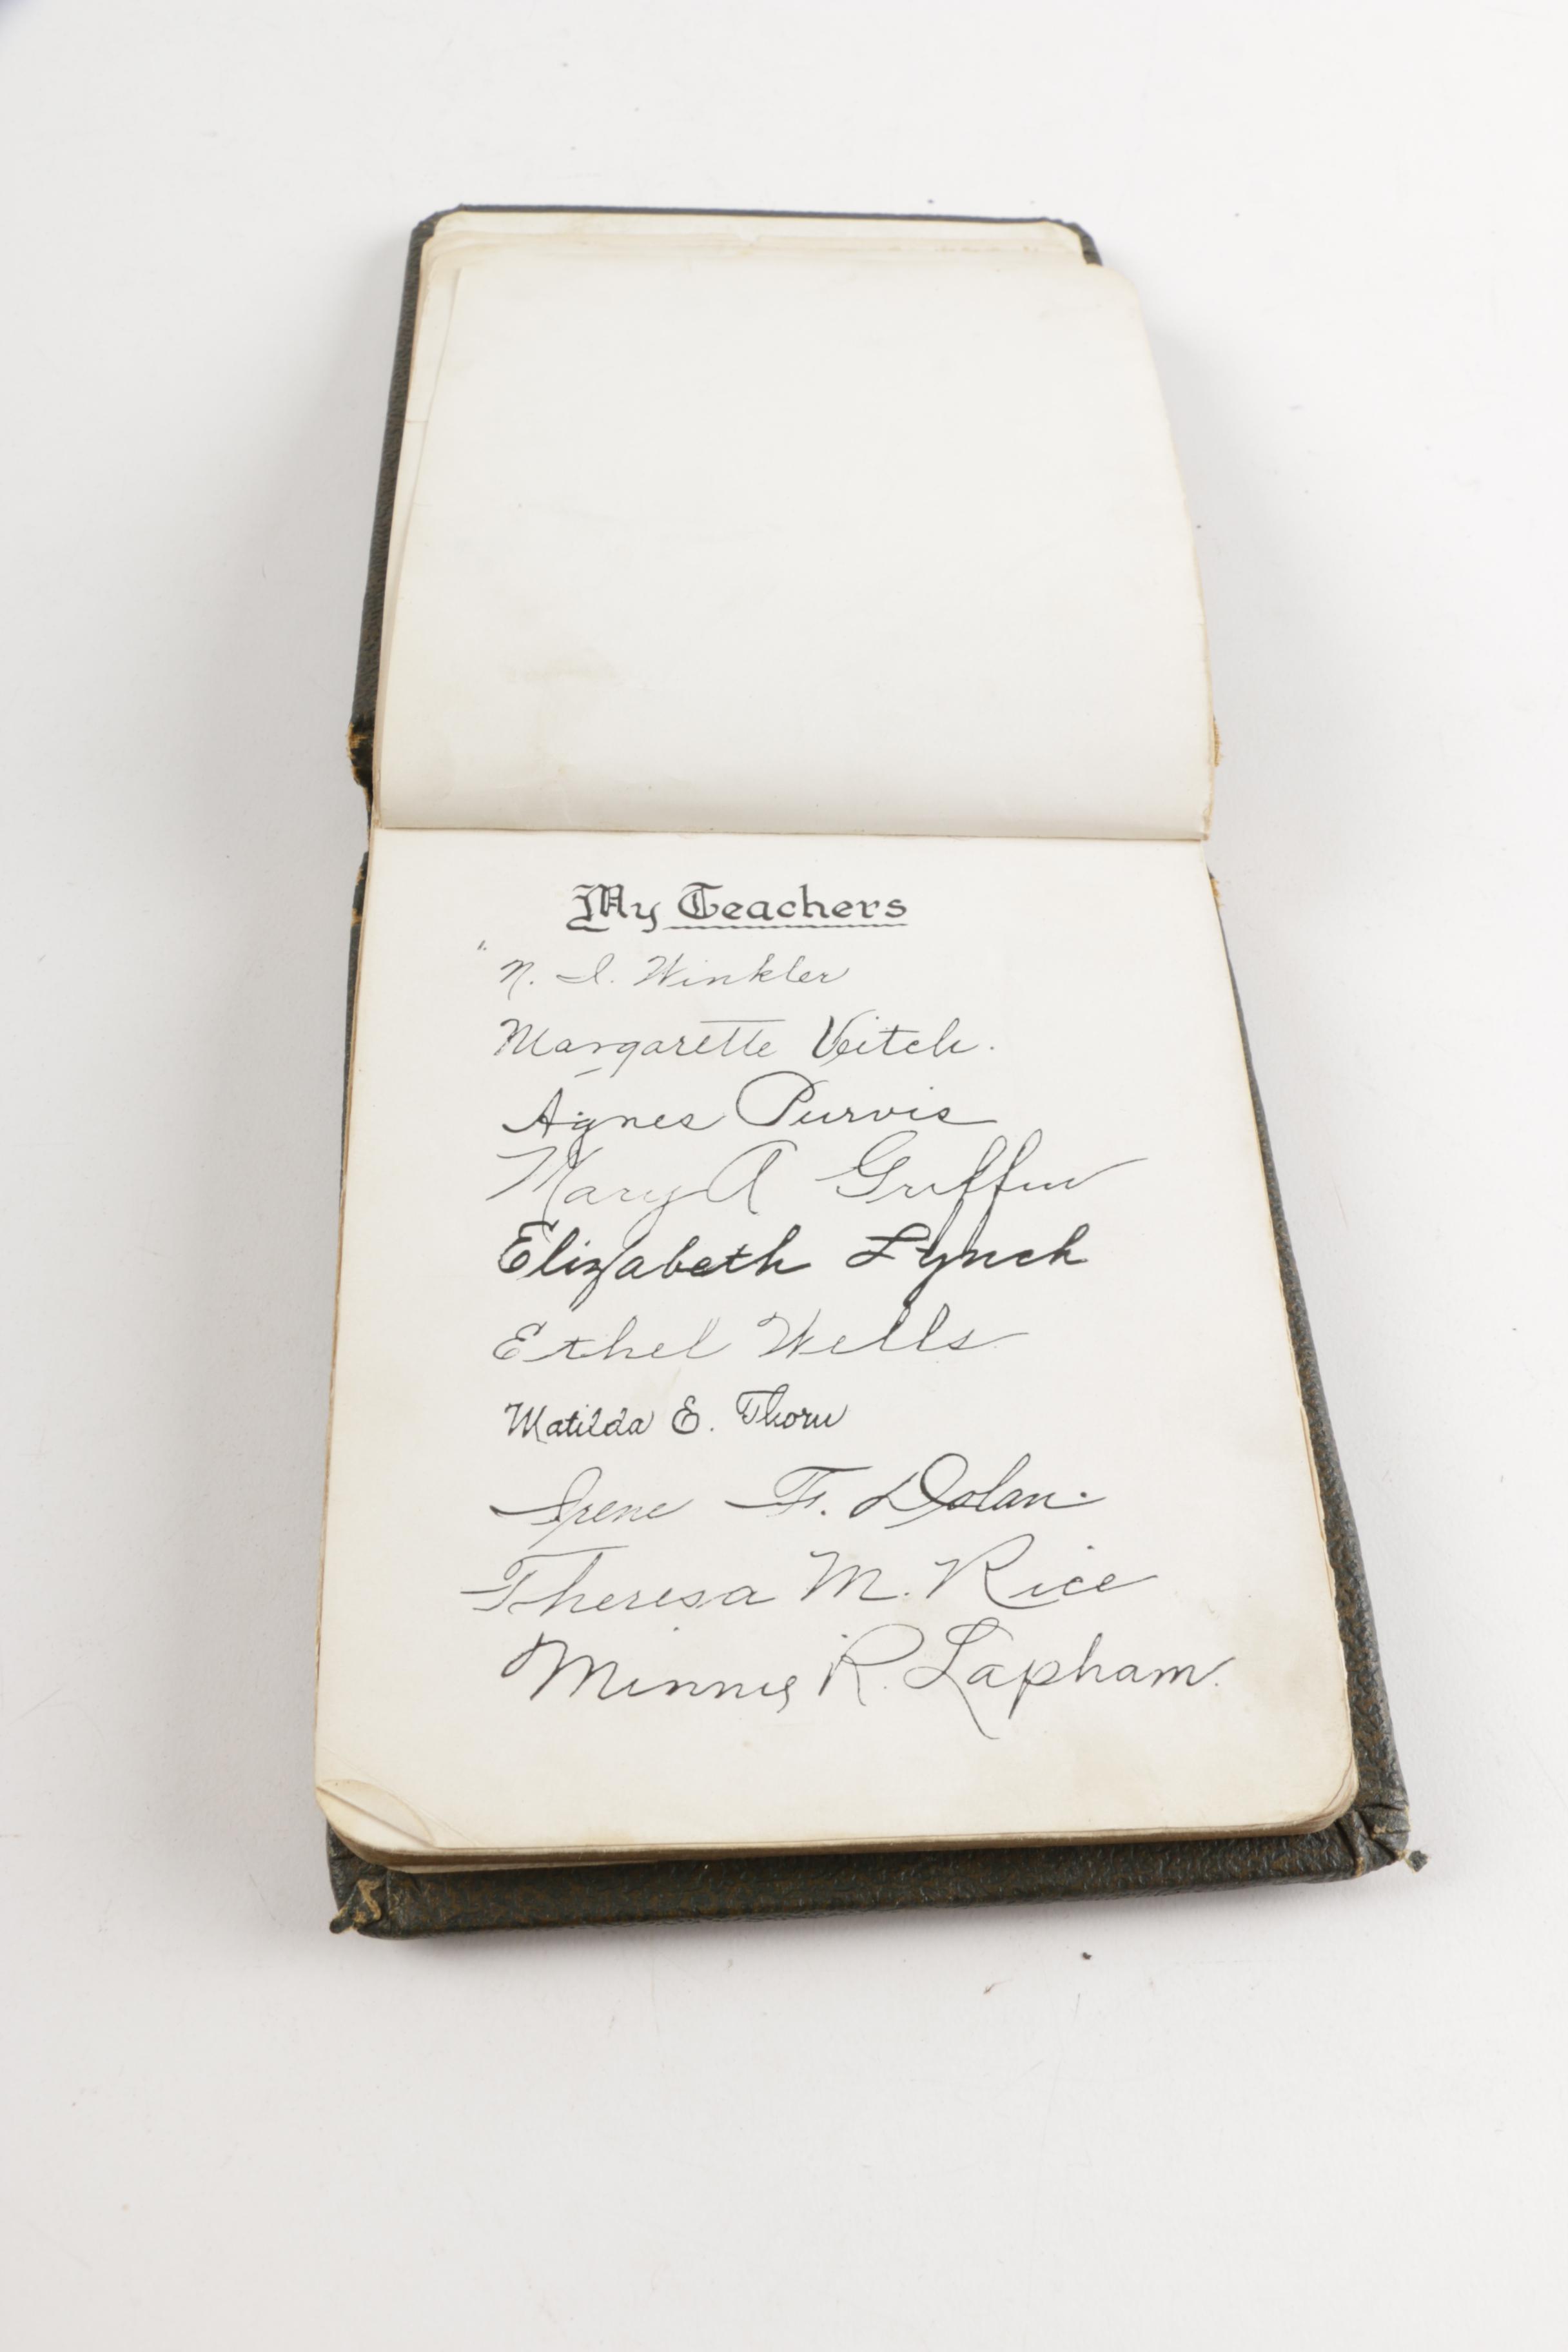 My Teachers
N. I. Winkler
Margarette Veitch.
Agnes Purvis
Mary A Griffin
Elizabeth Lynch
Ethel Wells
Matilda E. Thorn
Irene F. Dolan.
Theresa M. Rice
Minnie R. Lapham.